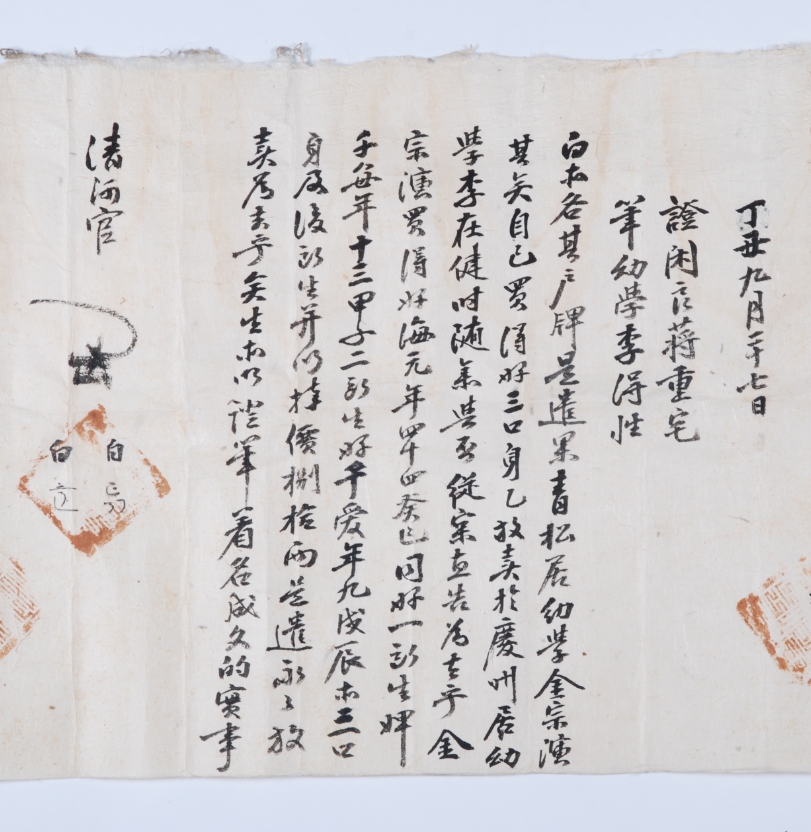 丁丑九月二十七日
證閑良蔣重宅
筆幼學李得性
白等各其戶牌是遣果青松居幼學金宗演
其矣自己買得奴三口身乙放賣於慶州居幼
學李在健時隨參與否從實直告爲去乎金
宗演買得奴海元年四十四癸巳同奴一所生婢
千每年十三甲子二所生奴千愛年九戊辰等三口
身及後所生幷以折價捌拾兩是遣永〻放
賣爲去乎矣生等以證筆着名成文的實事
清河官
白
白